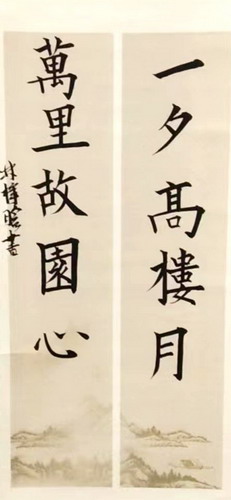 一夕高樓月
萬里故園心